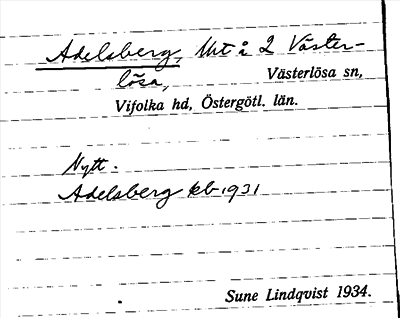 Adelsberg, Utt å 2 Väster-
lösa, Västerlösa sn,
Vifolka hd, Östergötl. län.
Nytt.
Adelsberg kb 1931
Sune Lindqvist 1934.